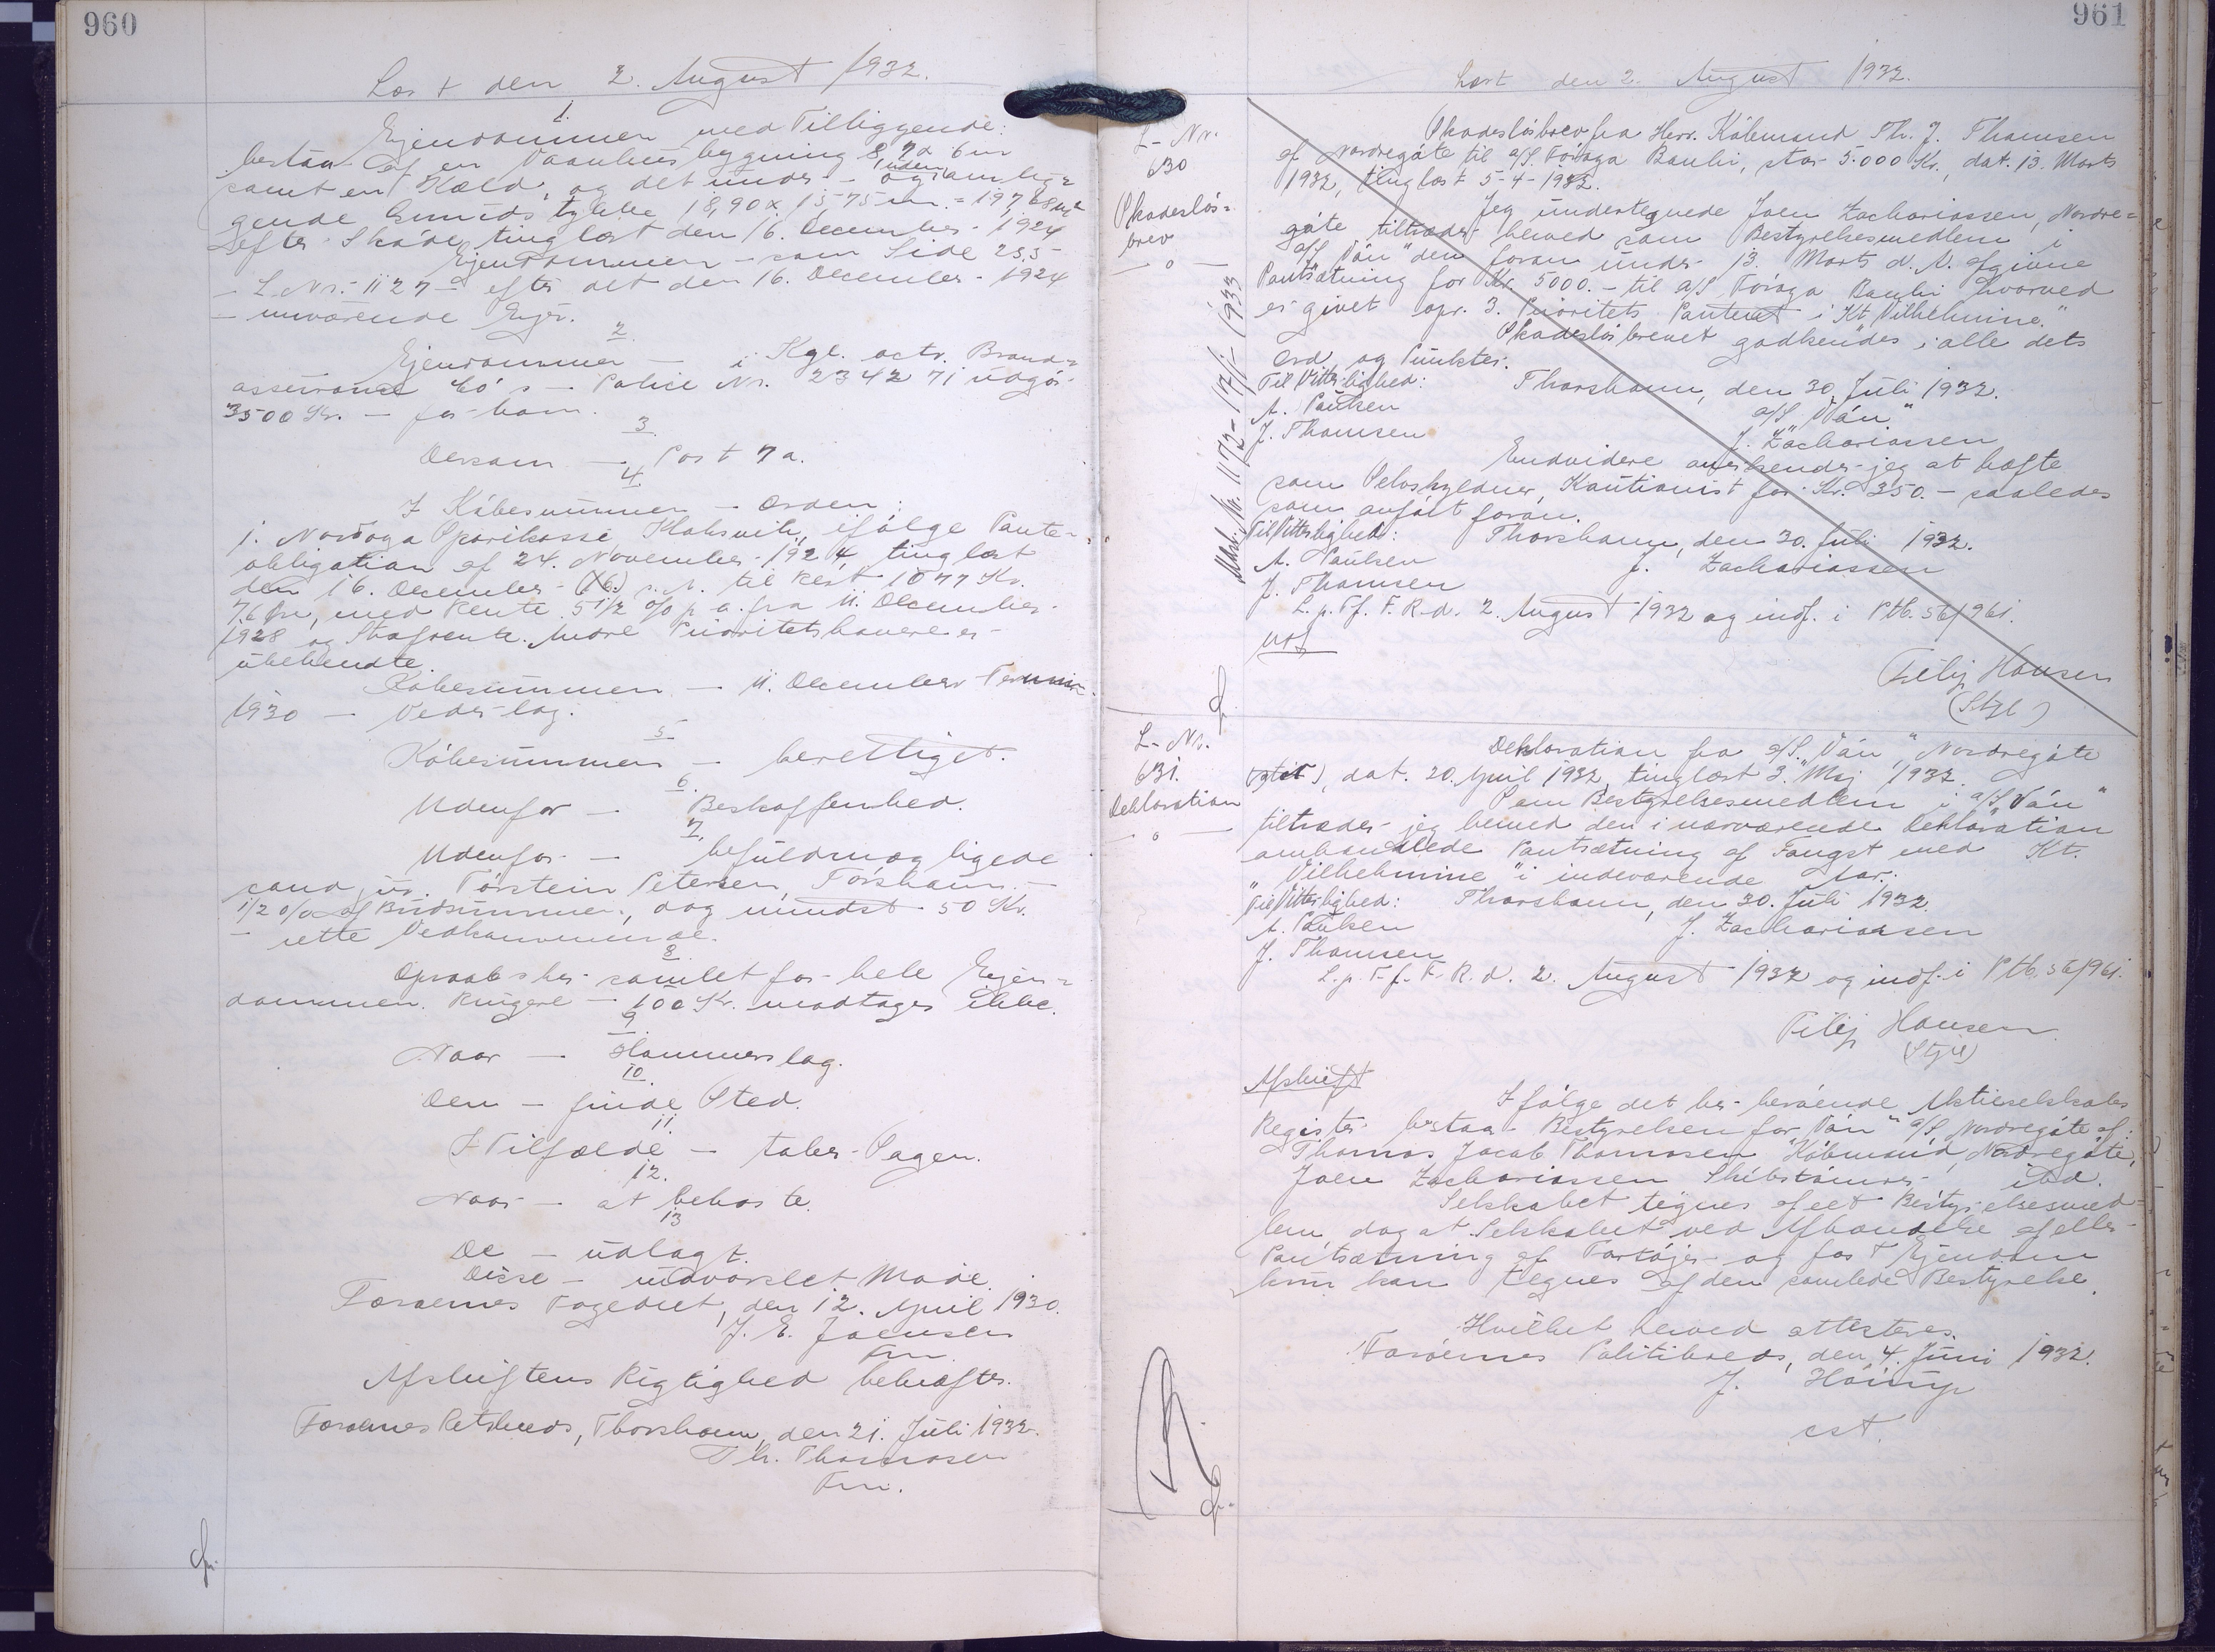 960
Læst den 2. August 1932.
1.
Ejendommen med Tilliggende:
bestaar af en Vaanhusbygning 8,70 x 6 m
samt en Kæld, og det under- og uden omlig=
gende Grundstykke 18,90 x 15-75 m. = 197,68 m²
efter Skøde, tinglæst den 16. December 1924
Ejendommen - som Side 255
- L. Nr. 1127 - efter det den 16. December 1924
- nuværende Ejer.
2.
Ejendommen - i Kgl. octr. Brand=
assurance Co's - Police Nr. 234271 udgør
3500 Kr. - for ham.
3.
Dersom - Post 7a.
4.
I Købesummen - Orden:
1. Nordoya Sparikassi Klaksvik, ifølge Pante-
obligation af 24. November 1924, tinglæst
den 16. December (16.) s. A. til Rest 1077 Kr.
76 Øre, med Rente 5 1/2 o/o p.a. fra 11. December
1928 og Strafrente. Andre Prioritetshavere er
ubekendte.
Købesummen - 11. December Termin
1930 - Vederlag.
5.
Købesummen - berettiget.
6.
Udenfor - Beskaffenhed.
7.
Udenfor - befuldmægtigede
cand. jur. Tórstein Petersen, Tórshavn. -
1/2 o/o af Budsummen, dog mindst 50 Kr.
- rette Vedkommende.
8.
Opraabs her samlet for hele Ejen=
dommen. Ringere - 100 Kr. modtages ikke.
9.
Naar - Hammerslag.
10.
Den - finde Sted.
11.
I Tilfælde - taber Sagen.
12.
Naar - at bekoste.
13
De - udlagt.
Disse - udvarslet Møde.
Færøernes Fogedret, den 12. April 1930.
J. E. Joensen
Fm.
Afskriftens Rigtighed bekræftes.
Færøernes Retskreds, Thorshavn, den 21. Juli 1932.
Th. Thomassen
Fm.
961
Læst den 2. August 1932.
L. Nr.
630
Skadesløs=
brev
- o -
Aflst. Nr. 1172 - 17/1 1933
Skadesløsbrev fra Herr. Købmand Th. J. Thomsen
af Nordregøte til a/S. Føroya Banki, stor 5.000 Kr., dat. 13. Marts
1932, tinglæst 5-4-1932.
Jeg undertegnede Joen Zachariassen, Nordre=
gøte tiltræder herved som Bestyrelsesmedlem i
a/S "Ván" den foran under 13. Marts d. A. afgivne
Pantsætning for Kr. 5000.- til a/S Føroya Banki hvorved
er givet opr. 3. Prioritets Panteret i Kt. "Vilhelmine."
Skadesløsbrevet godkendes i alle dets
Ord og Punkter.
Til Vitterlighed: Thorshavn, den 30. Juli 1932.
A. Paulsen a/S "Ván"
J. Thomsen J. Zachariassen
Endvidere anerkender jeg at hæfte
som Selvskyldner Kautionist for Kr. 350.- saaledes
som anført foran.
Til Vitterlighed: Thorshavn, den 30. Juli 1932.
A. Paulsen J. Zachariassen
J. Thomsen
L. p. T. f. F. R. d. 2. August 1932 og indf. i Ptb. S6/961.
Filip Hansen
(Stgl)
L. Nr.
631.
Deklaration
- o -
Deklaration fra a/S. "Ván," Nordregøte
, dat. 20. April 1932, tinglæst 3. Maj 1932.
Som Bestyrelsesmedlem i a/S. "Ván"
tiltræder jeg herved den i nærværende Deklaration
omhandlede Pantsætning af Fangst med Kt.
"Vilhelmine" i indeværende Aar.
Til Vitterlighed: Thorshavn, den 30. Juli 1932.
A. Paulsen J. Zachariassen
J. Thomsen
L. p. T. f. F. R. d. 2. August 1932 og indf. i Ptb. S6/961.
Filip Hansen
(Stgl)
Afskrift
Ifølge det her beroende Aktieselskabs
Register bestaar Bestyrelsen for "Ván" a/S, Nordregøte af:
Thomas Jacob Thomsen Købmand, Nordregøte,
Joen Zachariassen Skibstømrer ibd.
Selskabet tegnes af eet Bestyrelsesmed=
lem, dog at Selskabet ved Afhændelse af eller
Pantsætning af Fartøjer og fast Ejendom
kun kan tegnes af den samlede Bestyrelse.
Hvilket herved attesteres.
Færøernes Politikreds, den 4. Juni 1932.
J. Høirup
cst.